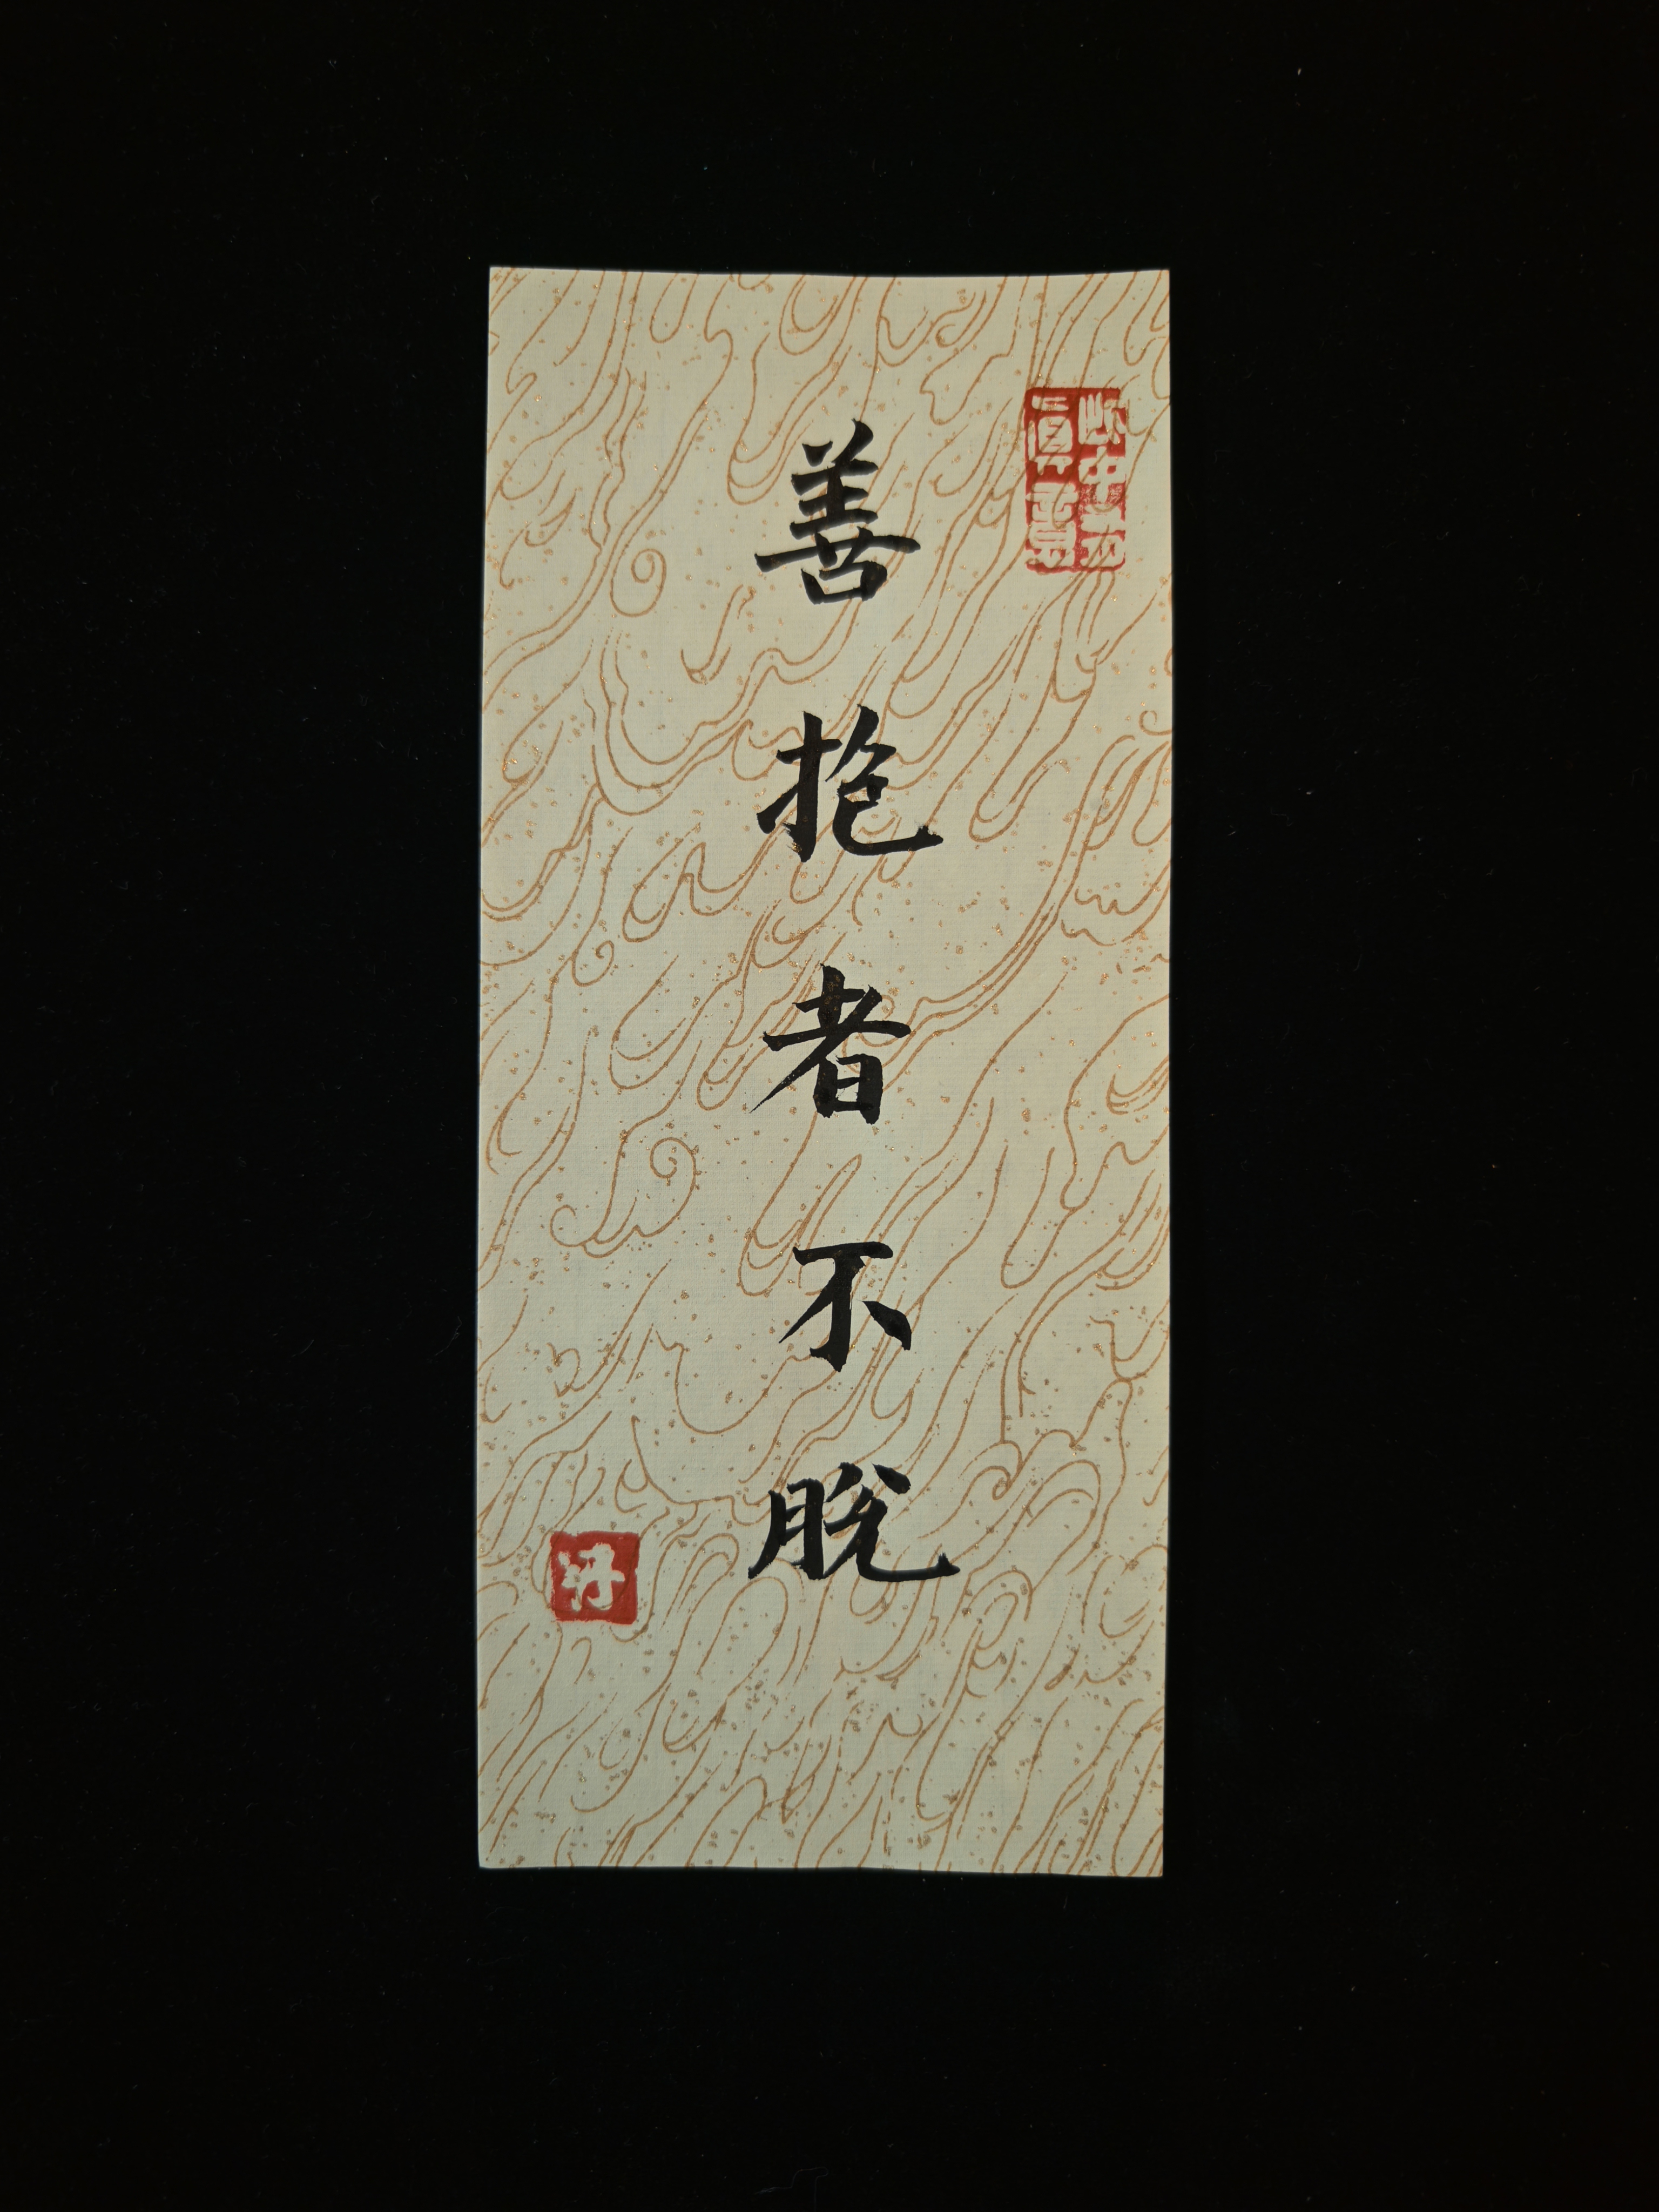 善抱者不脱